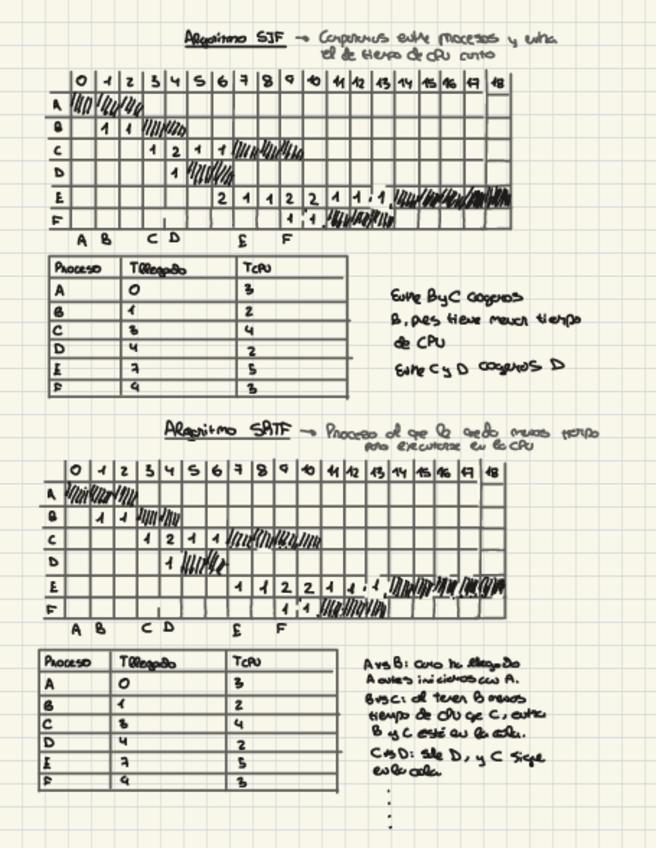 Algoritmo SJF → Comparamos entre procesos y entra
el de tiempo de CPU corto
0 1 2 3 4 5 6 7 8 9 10 11 12 13 14 15 16 17 18
A
B 1 1
C 1 2 1 1
D 1
E 2 1 1 2 2 1 1 1
F 1 1
A B C D E F
Proceso Tllegada TCPU
A 0 3
B 1 2
C 3 4
D 4 2
E 7 5
F 9 3
Entre B y C cogemos
B, pues tiene menor tiempo
de CPU
Entre C y D cogemos D
Algoritmo SRTF → Proceso al que le queda menos tiempo
para ejecutarse en la CPU
0 1 2 3 4 5 6 7 8 9 10 11 12 13 14 15 16 17 18
A
B 1 1
C 1 2 1 1
D 1
E 1 1 2 2 1 1 1
F 1 1
A B C D E F
Proceso Tllegada TCPU
A 0 3
B 1 2
C 3 4
D 4 2
E 7 5
F 9 3
A vs B: como ha llegado
A antes iniciamos con A.
B vs C: al tener B menos
tiempo de CPU que C, entra
B y C está en la cola.
C vs D: sale D, y C sigue
en la cola